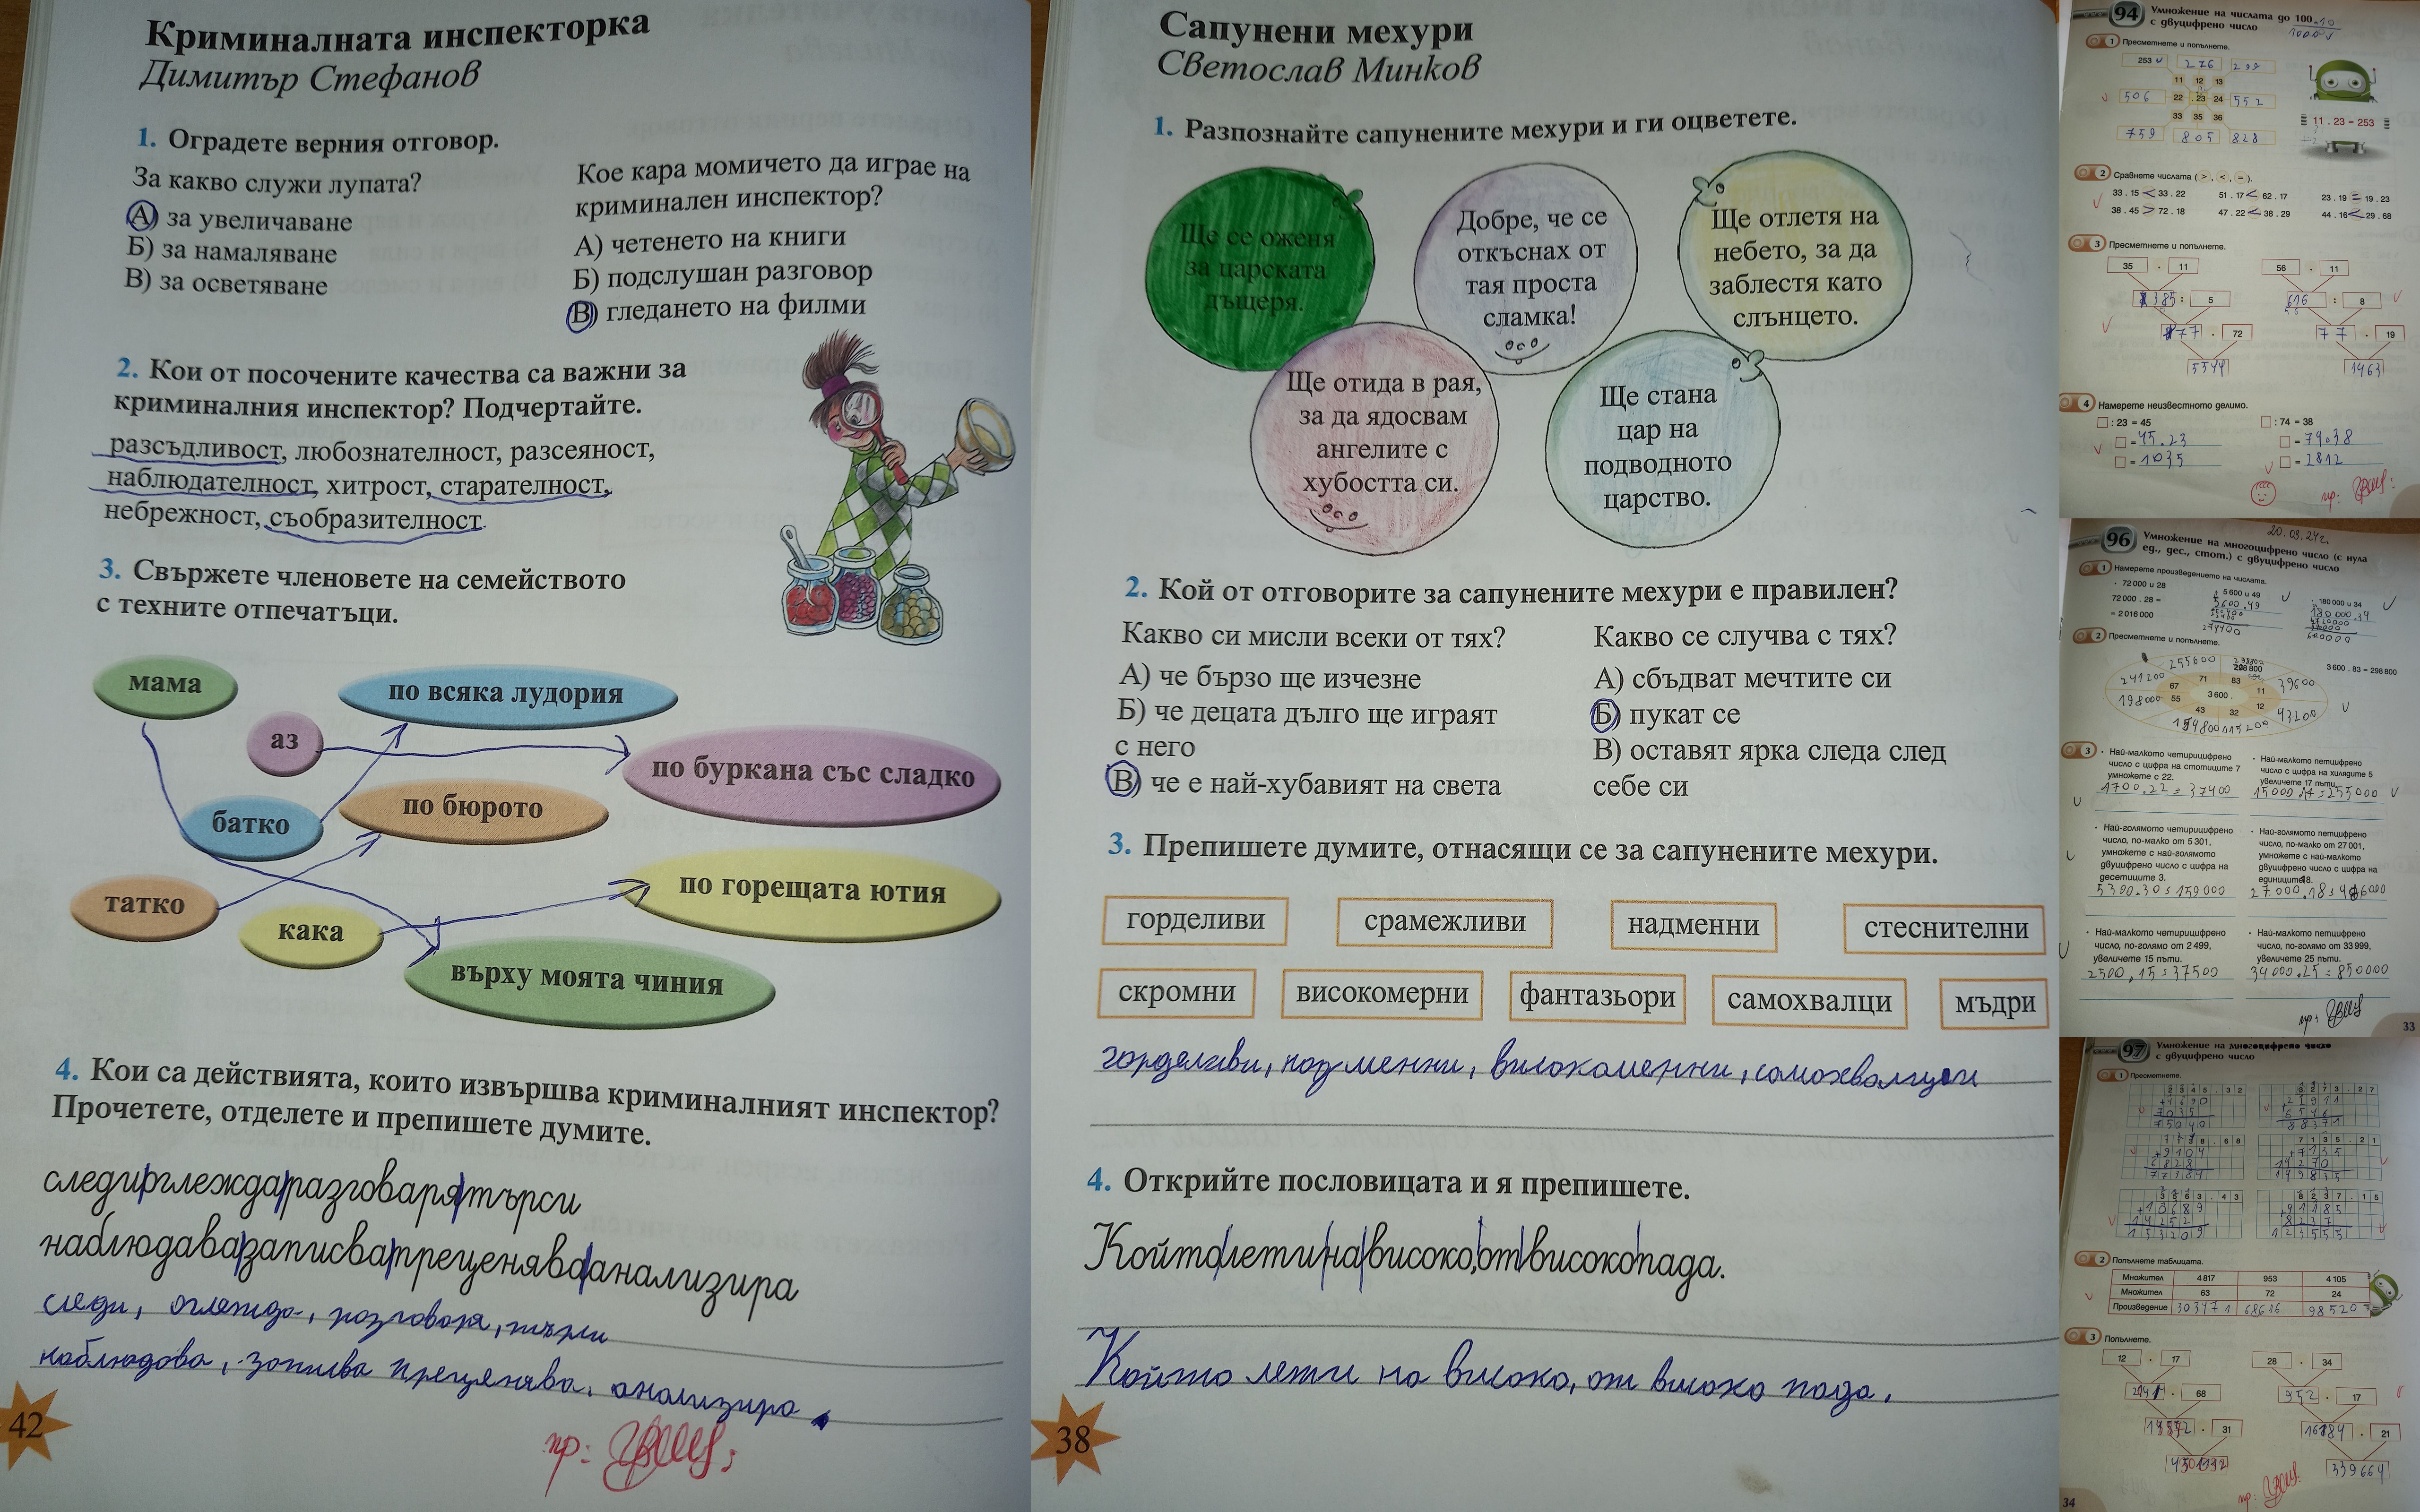 Криминалната инспекторка
Димитър Стефанов
1. Оградете верния отговор.
За какво служи лупата?
А) за увеличаване
Б) за намаляване
В) за осветяване
Кое кара момичето да играе на
криминален инспектор?
А) четенето на книги
Б) подслушан разговор
В) гледането на филми
2. Кои от посочените качества са важни за
криминалния инспектор? Подчертайте.
разсъдливост, любознателност, разсеяност,
наблюдателност, хитрост, старателност,
небрежност, съобразителност.
3. Свържете членовете на семейството
с техните отпечатъци.
мама
по всяка лудория
аз
по буркана със сладко
батко
по бюрото
татко
по горещата ютия
кака
върху моята чиния
4. Кои са действията, които извършва криминалният инспектор?
Прочетете, отделете и препишете думите.
следиоглеждаразговарятърси
наблюдавазаписвапреценяваанализира
следи, оглежда, разговаря, търси
наблюдава, записва преценява, анализира
42
пр:
Сапунени мехури
Светослав Минков
1. Разпознайте сапунените мехури и ги оцветете.
Ще се оженя
за царската
дъщеря.
Добре, че се
откъснах от
тая проста
сламка!
Ще отлетя на
небето, за да
заблестя като
слънцето.
Ще отида в рая,
за да ядосвам
ангелите с
хубостта си.
Ще стана
цар на
подводното
царство.
2. Кой от отговорите за сапунените мехури е правилен?
Какво си мисли всеки от тях?
А) че бързо ще изчезне
Б) че децата дълго ще играят
с него
В) че е най-хубавият на света
Какво се случва с тях?
А) сбъдват мечтите си
Б) пукат се
В) оставят ярка следа след
себе си
3. Препишете думите, отнасящи се за сапунените мехури.
горделиви срамежливи надменни стеснителни
скромни високомерни фантазьори самохвалци мъдри
горделиви, надменни, високомерни, самохвалци
4. Открийте пословицата и я препишете.
Който лети на високо, от високо пада.
Който лети на високо, от високо пада.
38
94 Умножение на числата до 100
с двуцифрено число
1 Пресметнете и попълнете.
253 276 299
11 12 13
506 22 . 23 24 552
33 35 36
759 805 828
11 . 23 = 253
2 Сравнете числата (>, <, =).
33 . 15 < 33 . 22 51 . 17 < 62 . 17 23 . 19 = 19 . 23
38 . 45 > 72 . 18 47 . 22 < 38 . 29 44 . 16 < 29 . 68
3 Пресметнете и попълнете.
35 . 11 56 . 11
385 : 5 616 : 8
77 . 72 77 . 19
5544 1463
4 Намерете неизвестното делимо.
: 23 = 45 : 74 = 38
= 45.23 = 74.38
= 1035 = 2812
пр:
20.03.24г.
96 Умножение на многоцифрено число (с нула
ед., дес., стот.) с двуцифрено число
1 Намерете произведението на числата.
• 72 000 и 28 • 5 600 и 49 • 180 000 и 34
72 000 . 28 = 5600.49 180000.34
= 2 016 000 274400
2 Пресметнете и попълнете.
255600 298 800 39600
241200 67 71 83 11
198000 55 3 600 . 12 43200
43 32
154800 115200
3 600 . 83 = 298 800
3 • Най-малкото четирицифрено
число с цифра на стотиците 7
умножете с 22.
1700.22=37400
• Най-малкото петцифрено
число с цифра на хилядите 5
увеличете 17 пъти.
15000.17=255000
• Най-голямото четирицифрено
число, по-малко от 5 301,
умножете с най-голямото
двуцифрено число с цифра на
десетиците 3.
5300.30=159000
• Най-голямото петцифрено
число, по-малко от 27 001,
умножете с най-малкото
двуцифрено число с цифра на
единиците 8.
27000.18=486000
• Най-малкото четирицифрено
число, по-голямо от 2 499,
увеличете 15 пъти.
2500.15=37500
• Най-малкото петцифрено
число, по-голямо от 33 999,
увеличете 25 пъти.
34000.25=850000
пр:
33
97 Умножение на многоцифрено число
с двуцифрено число
1 Пресметнете.
2345.32
4690
7035
75040
22911
6546
88371
9104
6828
77384
7135.21
7135
14270
149835
43
10689
14252
153209
8237.15
41185
8237
123555
2 Попълнете таблицата.
Множител 4 817 953 4 105
Множител 63 72 24
Произведение 303471 68616 98520
3 Попълнете.
12 . 17 28 . 34
. 68 952 . 17
. 31 16184 . 21
339664
пр:
34